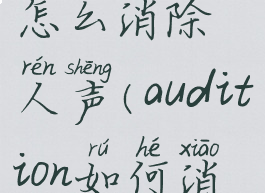 怎么消除
rén shēng
人声(audit
rú hé xiāo
ion如何消